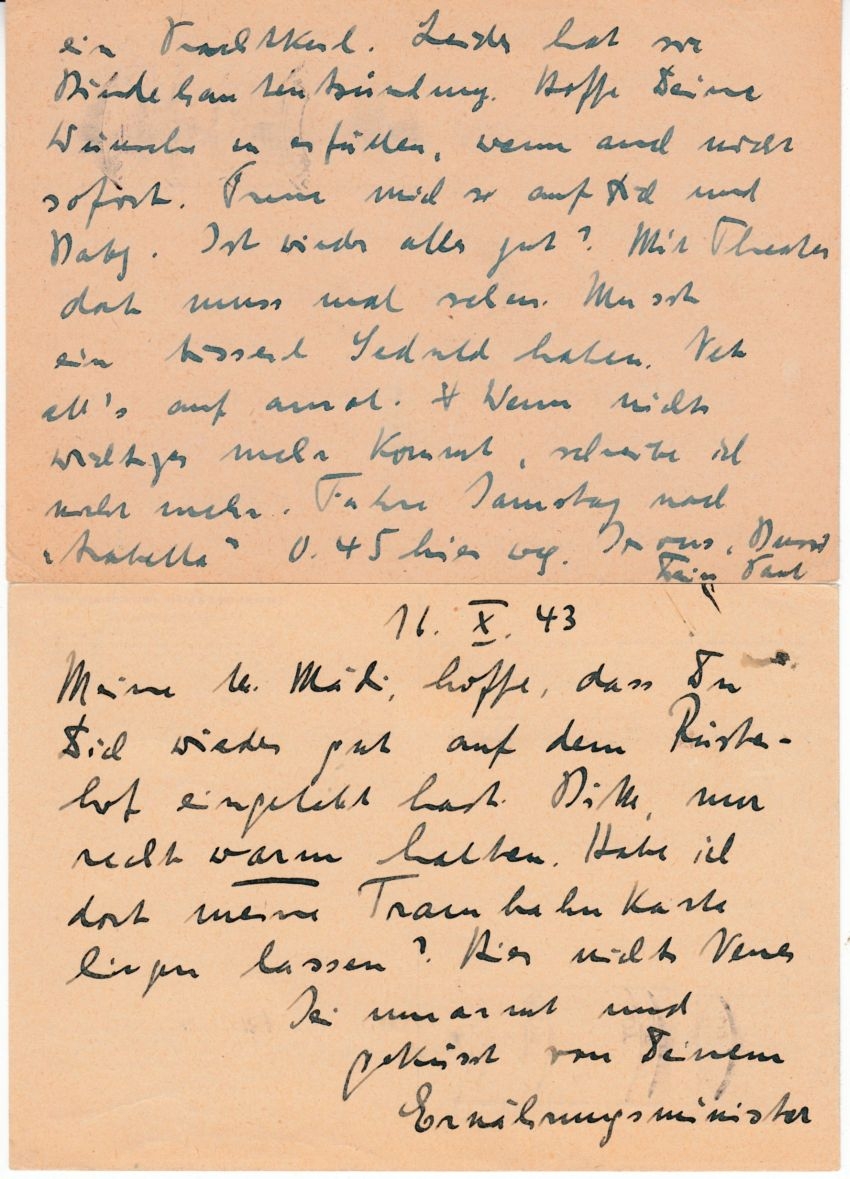 ein Prachtkerl. Leider hat sie
Bindehautentzündung. Hoffe Deine
Wünsche zu erfüllen, wenn auch nicht
sofort. Freue mich so auf Dich und
Baby. Ist wieder alles gut? Mit Theater
dort muss mal sehen. Musst
ein bisserl Geduld haben. Net
all's auf amal. Wenn nichts
wichtiges mehr kommt, schreibe ich
nicht mehr. Fahre Samstag nach
„Arabella" 0.45 hier weg. Bussi
Dein
16. X. 43
Meine lb. Mädi, hoffe, dass Du
Dich wieder gut auf dem Rüster-
hof eingelebt hast. Bitte, nur
recht warm halten. Habe ich
dort meine Trambahn Karte
liegen lassen? Hier nichts Neues
Sei umarmt und
geküsst von Deinem
Ernährungsminister